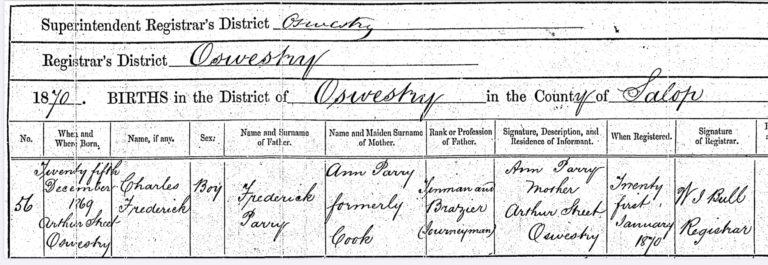 Superintendent Registrar's District Oswestry
Registrar's District Oswestry
1870. BIRTHS in the District of Oswestry in the County of Salop
No.
When and
Where Born,
Name, if any.
Sex.
Name and Surname
of Father.
Name and Maiden Surname
of Mother.
Rank or Profession
of Father.
Signature, Description, and
Residence of Informant.
When Registered.
Signature
of Registrar.
56
Twenty fifth
December
1869
Arthur Street
Oswestry
Charles
Frederick
Boy
Frederick
Parry
Ann Parry
formerly
Cook
Tinman and
Brazier
(Journeyman)
Ann Parry
Mother
Arthur Street
Oswestry
Twenty
first
January
1870
W J Bull
Registrar